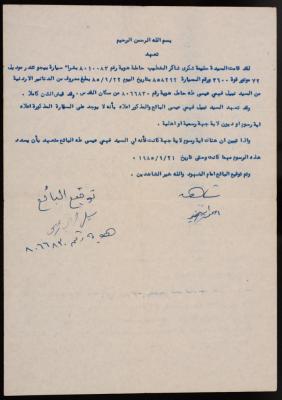 بسم الله الرحمن الرحيم
تعهد
لقد قامت السيدة سليمة شكري شاكر الخطيب حاملة هوية رقم ٨٠١٠٠٨٣ بشراء سيارة بيجو تندر موديل
٧٢ موتور قوة ٣٦٠٠ ورقم السيارة ٨٥٨٢٢٢ بتاريخ اليوم ٨٥/٦/٢٢ بمبلغ معروف من الدنانير الاردنية
من السيد نبيل فهمي عيسى طه حامل هوية رقم ٨٠٦٦٨٣٠ من سكان القدس . وقد قبض الثمن كاملا .
وقد تعهد السيد نبيل فهمي عيسى البائع والمذكور اعلاه بأنه لا يوجد على السيارة المذكورة اعلاه
اية رسوم او ديون لاية جهة رسمية او اهلية .
واذا تبين ان هناك اية رسوم لاية جهة كانت فأنه اي السيد فهمي عيسى طه البائع متعهد بأن يسدد
هذه الرسوم مهما كانت وحتى تاريخ ١٩٨٥/٦/٢١ .
وتم توقيع البائع امام الشهود والله خير الشاهدين .
شاهد
توقيع البائع
هوية رقم ٨٠٦٦٨٣٠